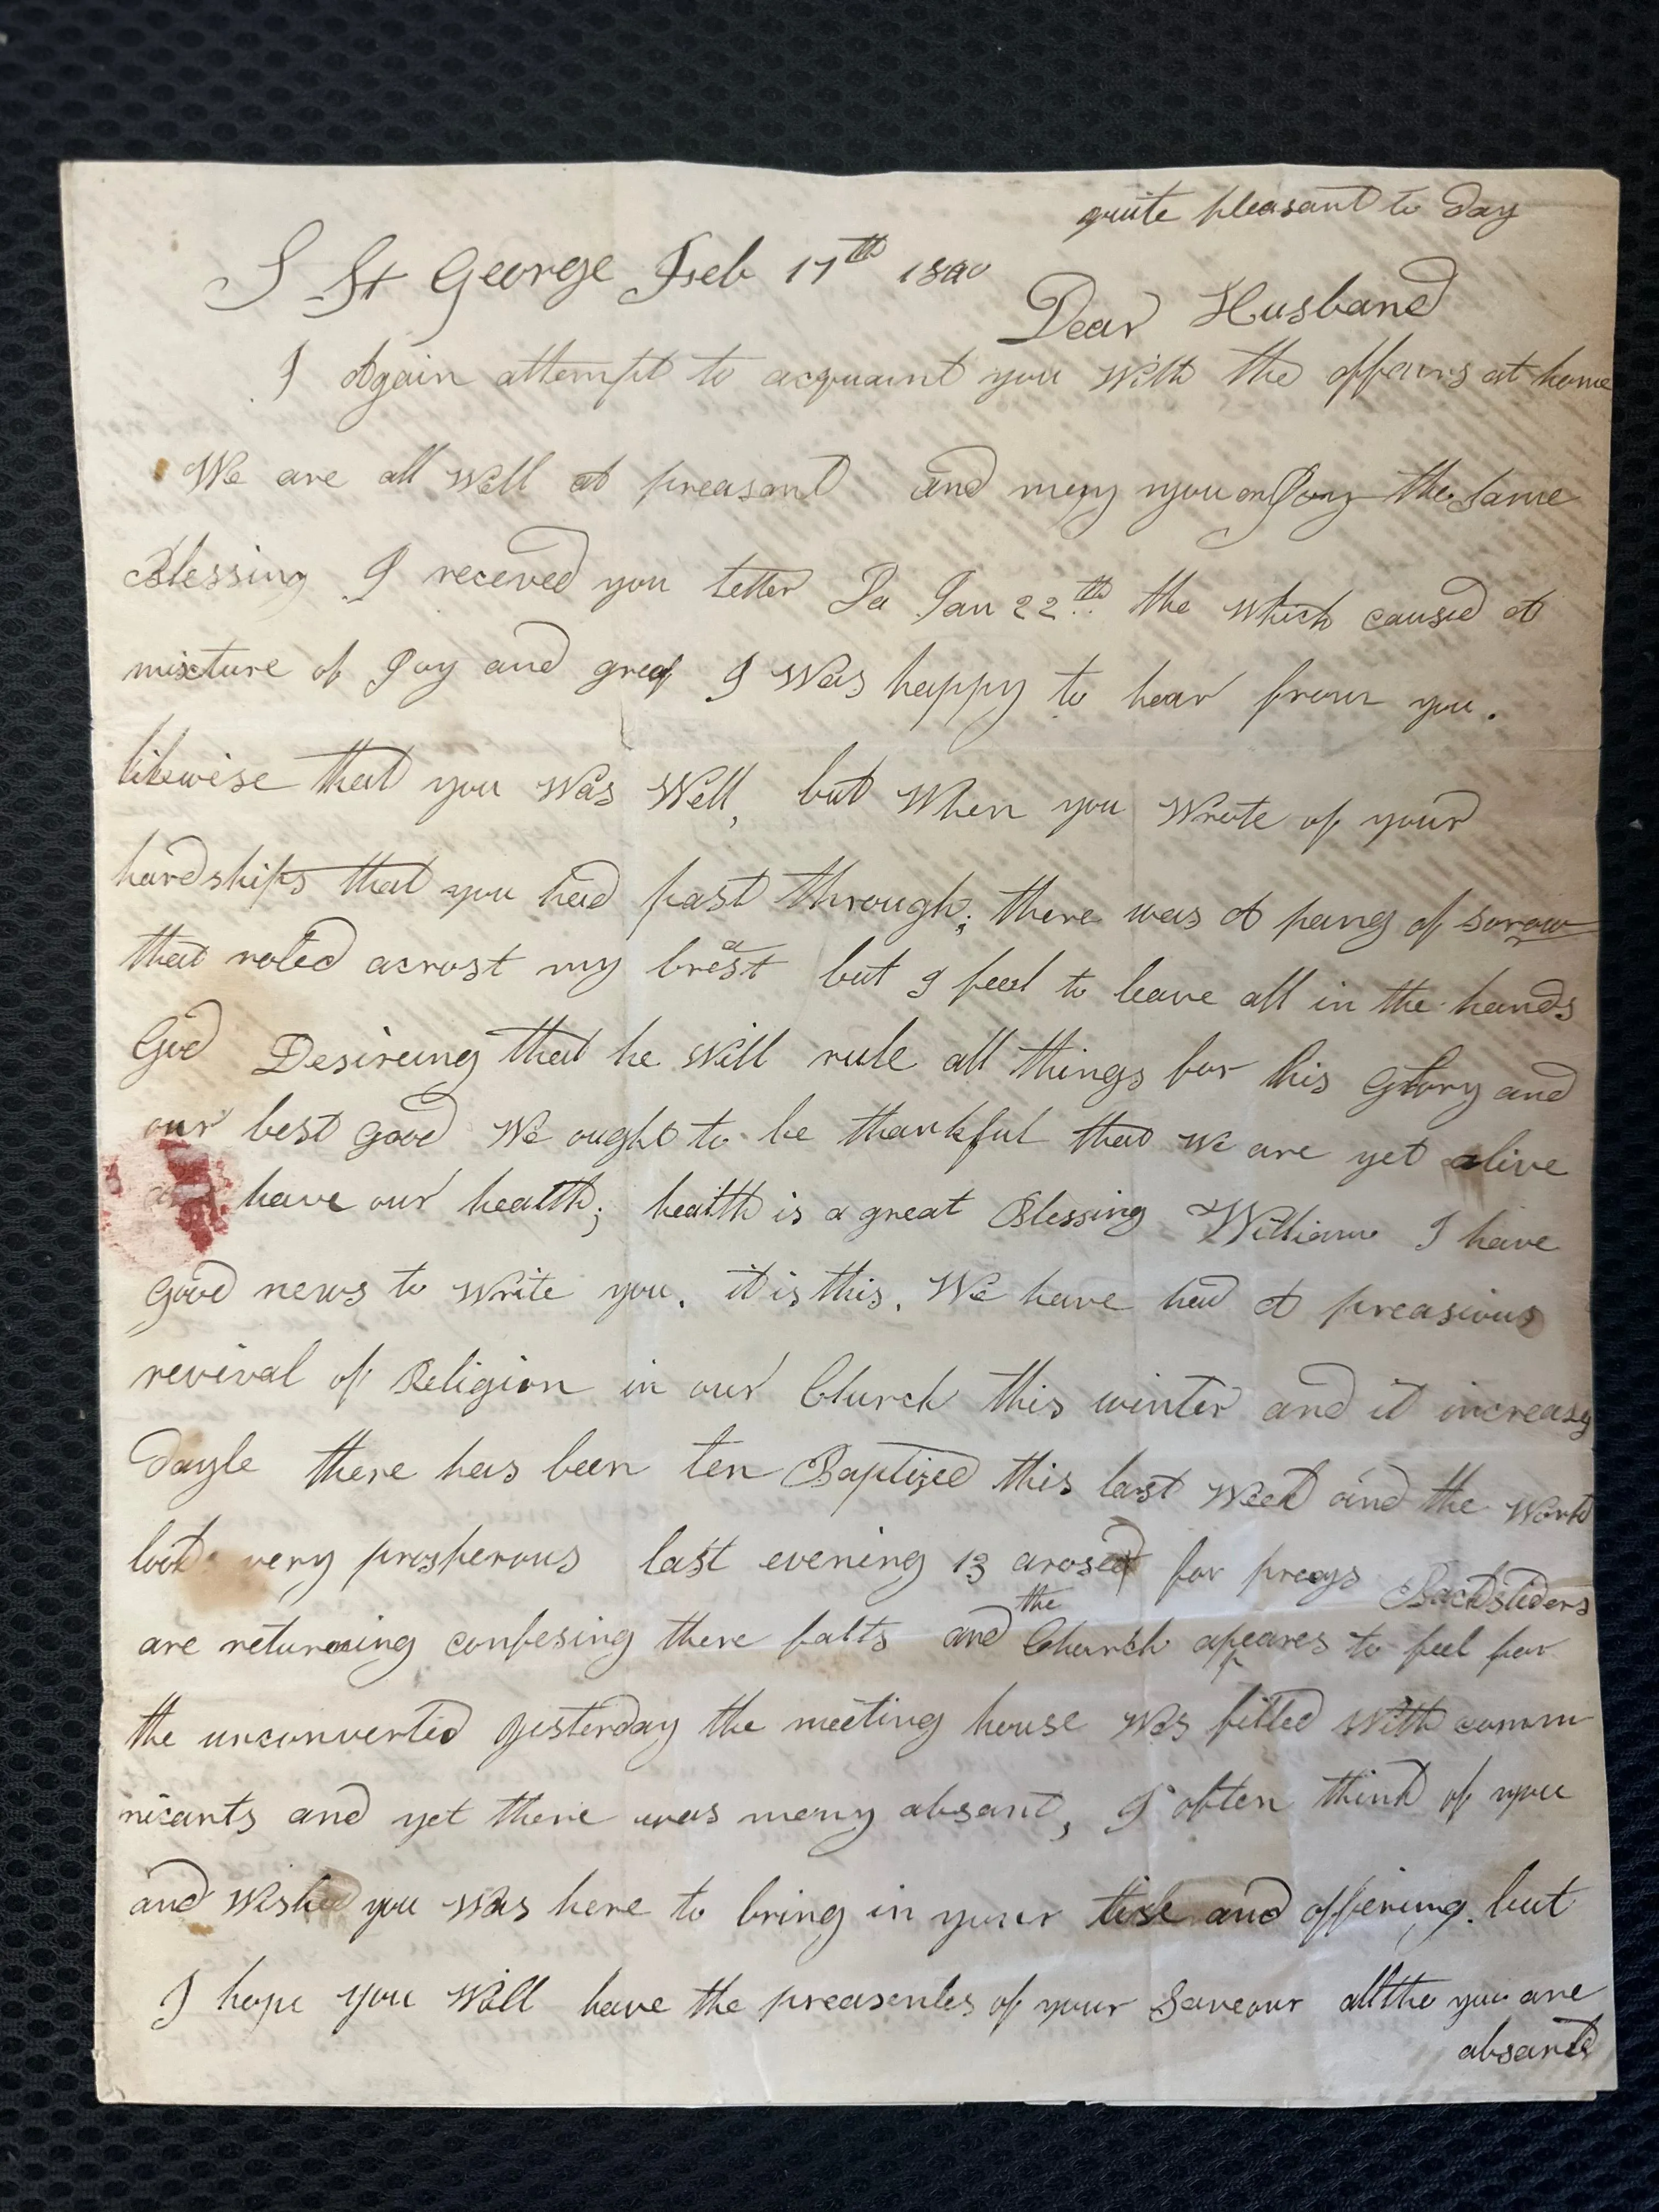 quite pleasant to day
S St George Feb 17th 18
Dear Husband
I Again attempt to acquaint you with the affairs at home
We are all well at preasant and may you enjoy the same
Blessing I receved you letter Da Jan 22th the which caused A
mixture of joy and greaf I was happy to hear from you.
likewise that you was well, but when you wrote of your
hardships that you had past through; there was A pang of sorow
that roled acrost my breast but I feel to leave all in the hands
God Desireing that he will rule all things for his Glory and
our best good We ought to be thankful that we are yet alive
have our health; health is a great Blessing William I have
good news to write you. it is this. We have had A preasious
revival of Religion in our Church this winter and it increasy
dayle there has been ten Baptized this last week and the work
look very prosperous last evening 13 arosed for prays Backsliders
are returning confesing there falts and the Church apeares to feel for
the unconverted yesterday the meeting house was filled with comm
nicants and yet there was many absant, I often think of you
and wished you was here to bring in your tise and offering. but
I hope you will have the preasentes of your Saveour alltho you are
absante